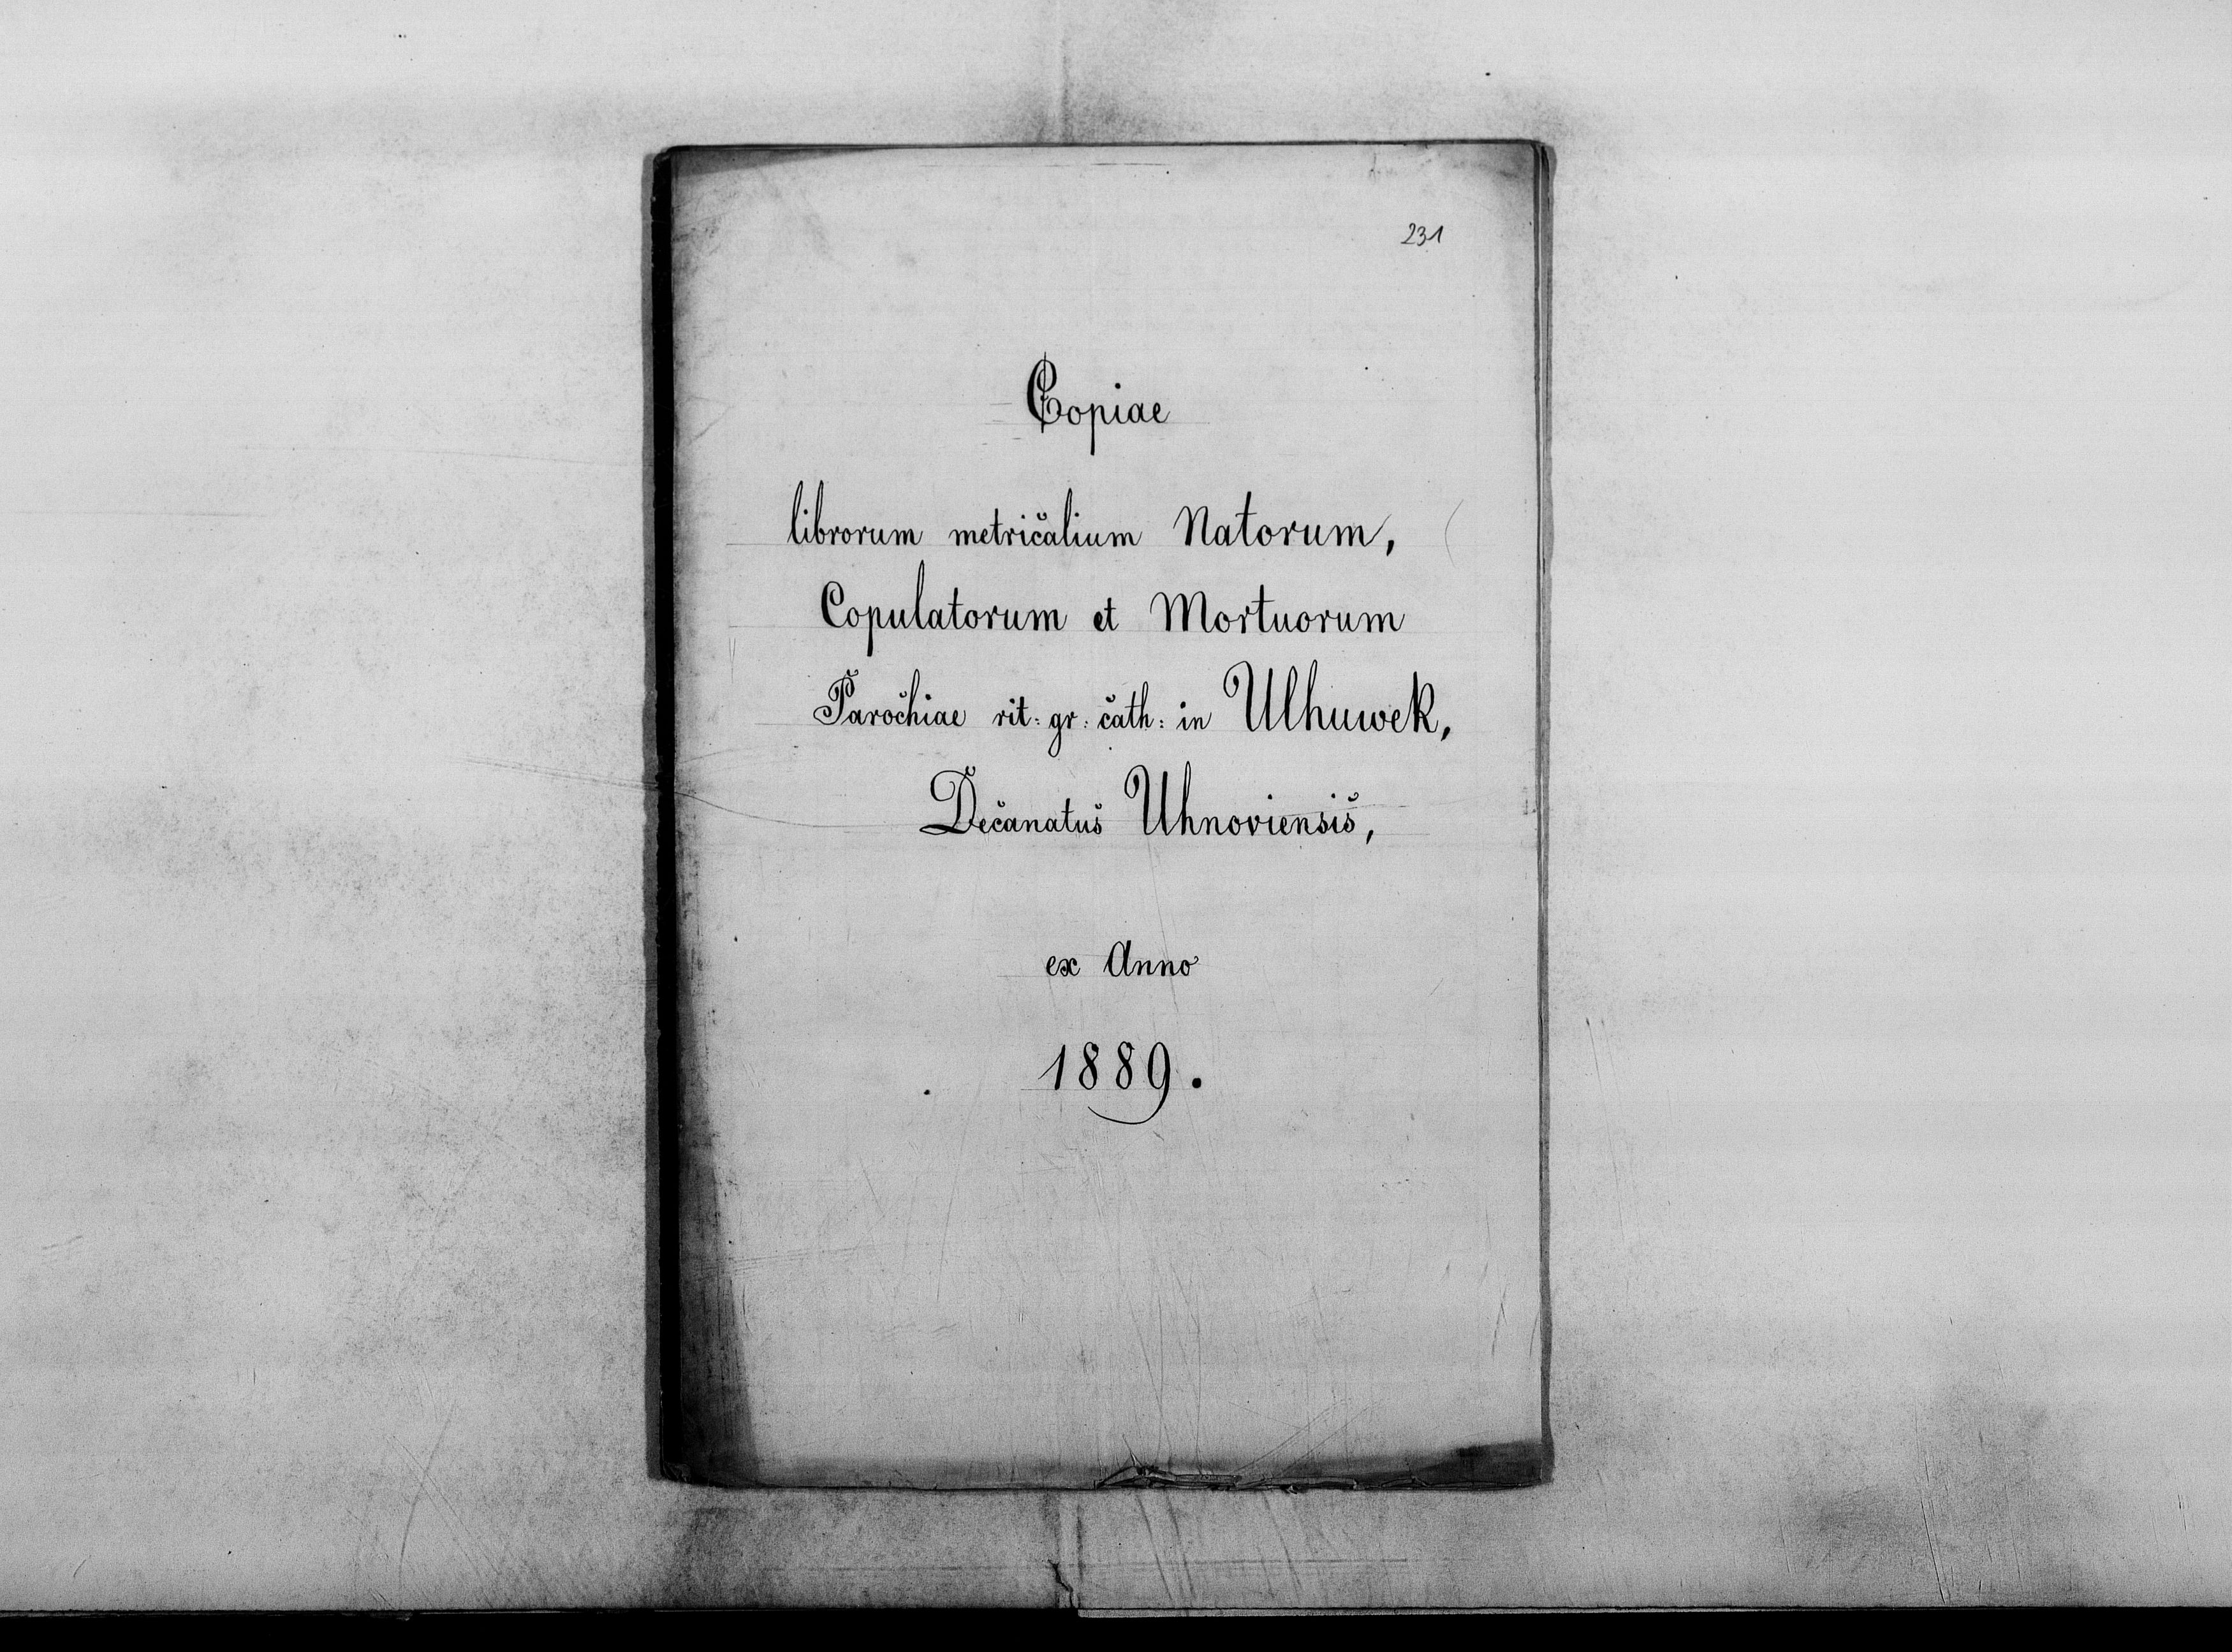 231
Copiae
librorum metričalium Natorum,
Copulatorum et Mortuorum
Paročhiae rit: gr: čath: in Ulhuwek,
Dečanatuš Uhnoviensiš,
ex Anno
1889.